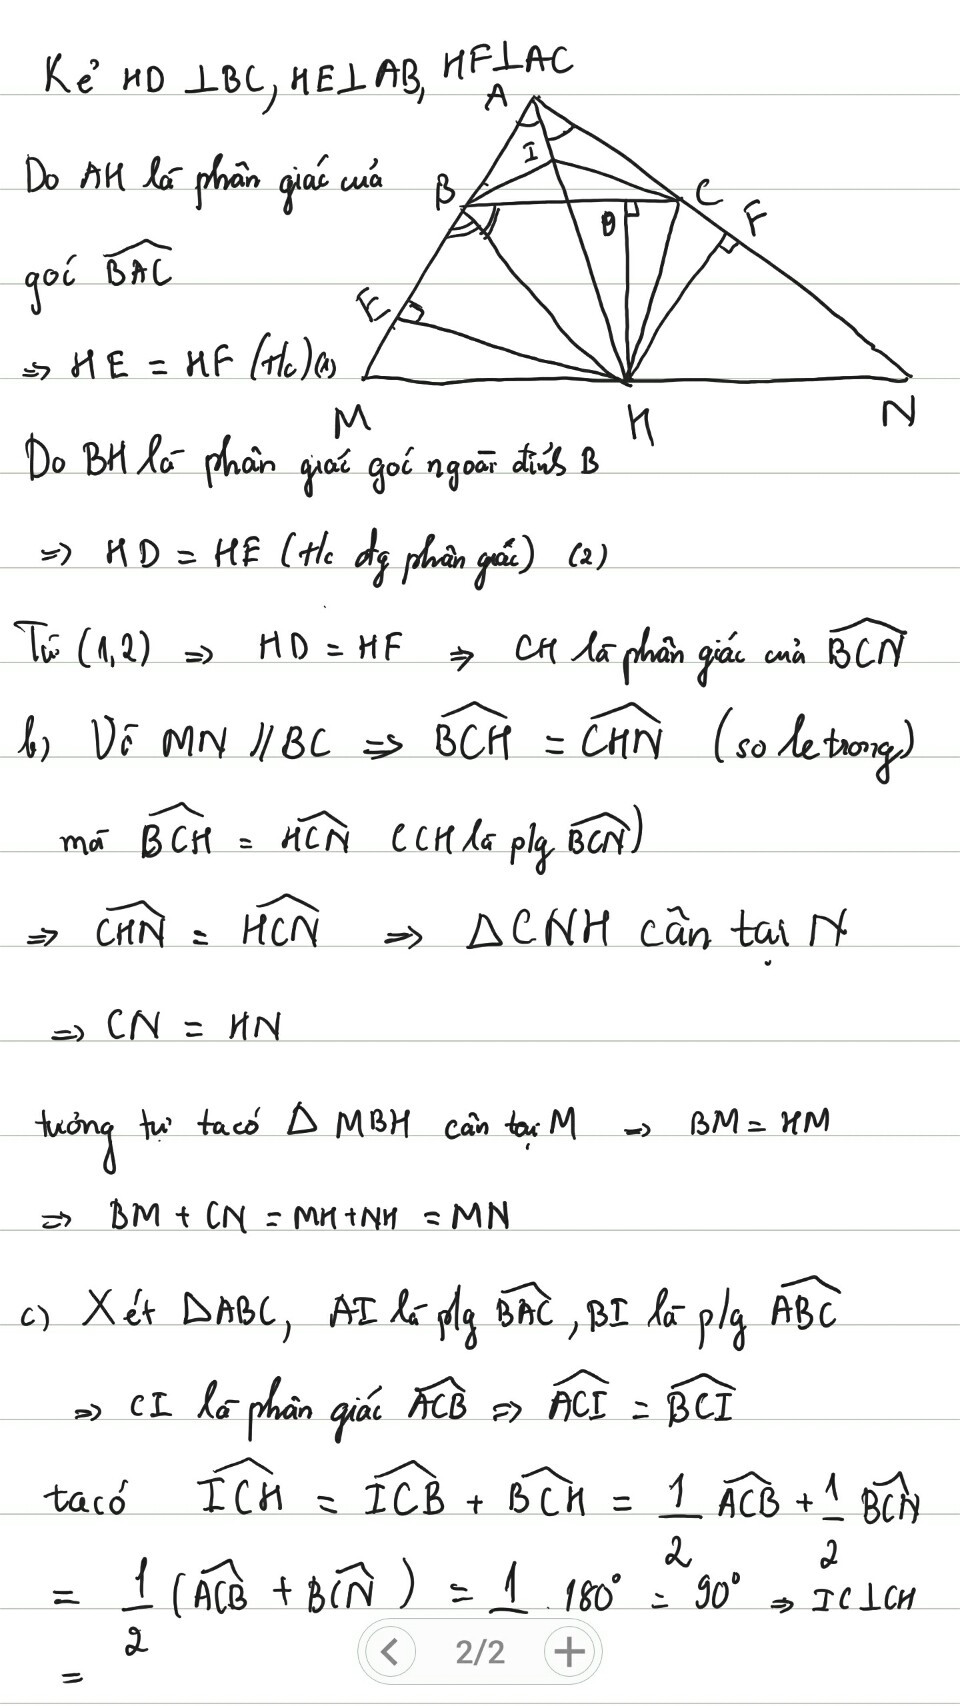 Kẻ HD ⊥ BC, HE ⊥ AB, HF ⊥ AC
A
I
B
C
D
F
E
M
H
N
Do AH là phân giác của
góc BAC
=> HE = HF (t/c) (1)
Do BH là phân giác góc ngoài đỉnh B
=> HD = HE (t/c đg phân giác) (2)
Từ (1,2) => HD = HF => CH là phân giác của BCN
b) Vì MN // BC => BCH = CHN (so le trong)
mà BCH = HCN (CH là p/g BCN)
=> CHN = HCN => ΔCNH cân tại N
=> CN = HN
tương tự ta có Δ MBH cân tại M => BM = HM
=> BM + CN = MH + NH = MN
c) Xét ΔABC, AI là p/g BAC, BI là p/g ABC
=> CI là phân giác ACB => ACI = BCI
ta có ICH = ICB + BCH = 1/2 ACB + 1/2 BCN
= 1/2 (ACB + BCN) = 1 . 180° = 90° => IC ⊥ CH
=
2/2